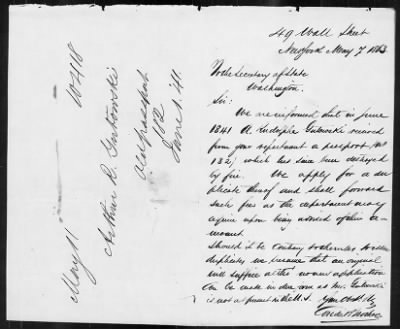 49 Wall Street
New York May 7 1883
To the Secretary of State
Washington.
Sir:
We are informed that in June
1841 A. Rudolphe Gutowski received
from your department a passport (No
132) which has since been destroyed
by fire. We apply for a du-
plicate thereof and shall forward
such fee as the department may
require upon being advised of the a-
mount.
Should it be contrary to the rules to issue
duplicates we presume that an original
will suffice as the no new application
can be made in due form as Mr. Gutowski
is not at present in the U.S.
May 11
Arthur R. Gutowski
Old passport
132
June 1. 41.
10418